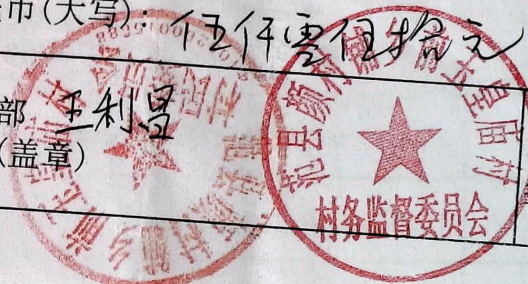 币(大写): 伍仟零伍拾元
部 王利昌
(盖章)
范县颜村铺乡前玉皇庙村
村务监督委员会